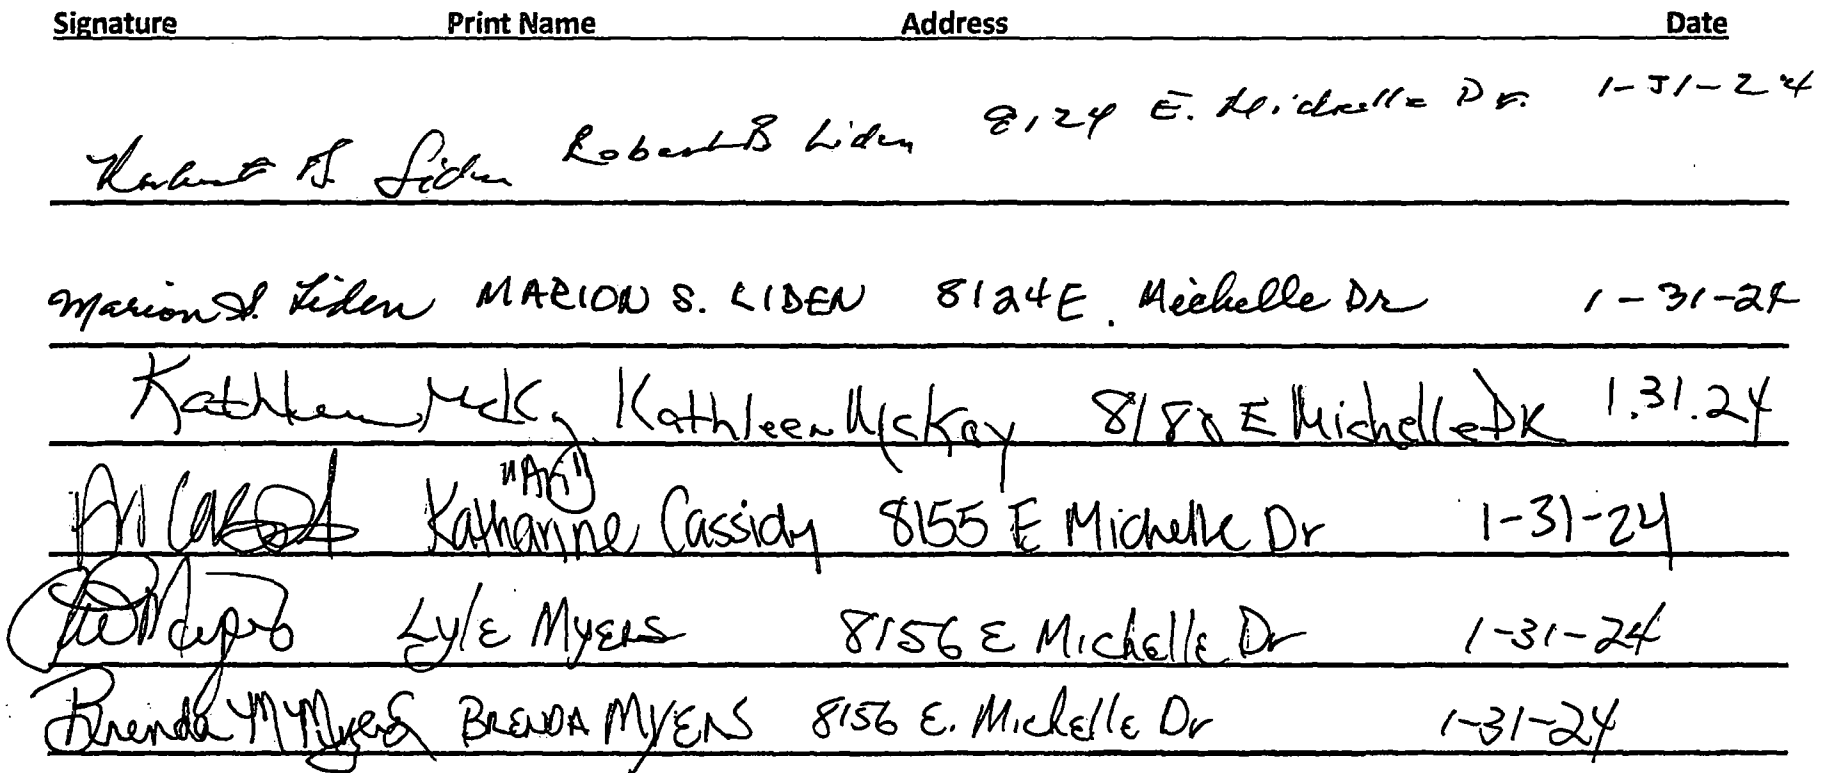 Signature Print Name Address Date
Robert B Liden Robert B Liden 8124 E. Michelle Dr. 1-31-24
Marion S. Liden MARION S. LIDEN 8124 E. Michelle Dr 1-31-24
Kathleen McK Kathleen McKay 8180 E Michelle DR 1.31.24
"Ari"
Ari Katharine Cassidy 8155 E Michelle Dr 1-31-24
Myers Lyle Myers 8156 E Michelle Dr 1-31-24
Brenda M Myers BRENDA MYERS 8156 E. Michelle Dr 1-31-24